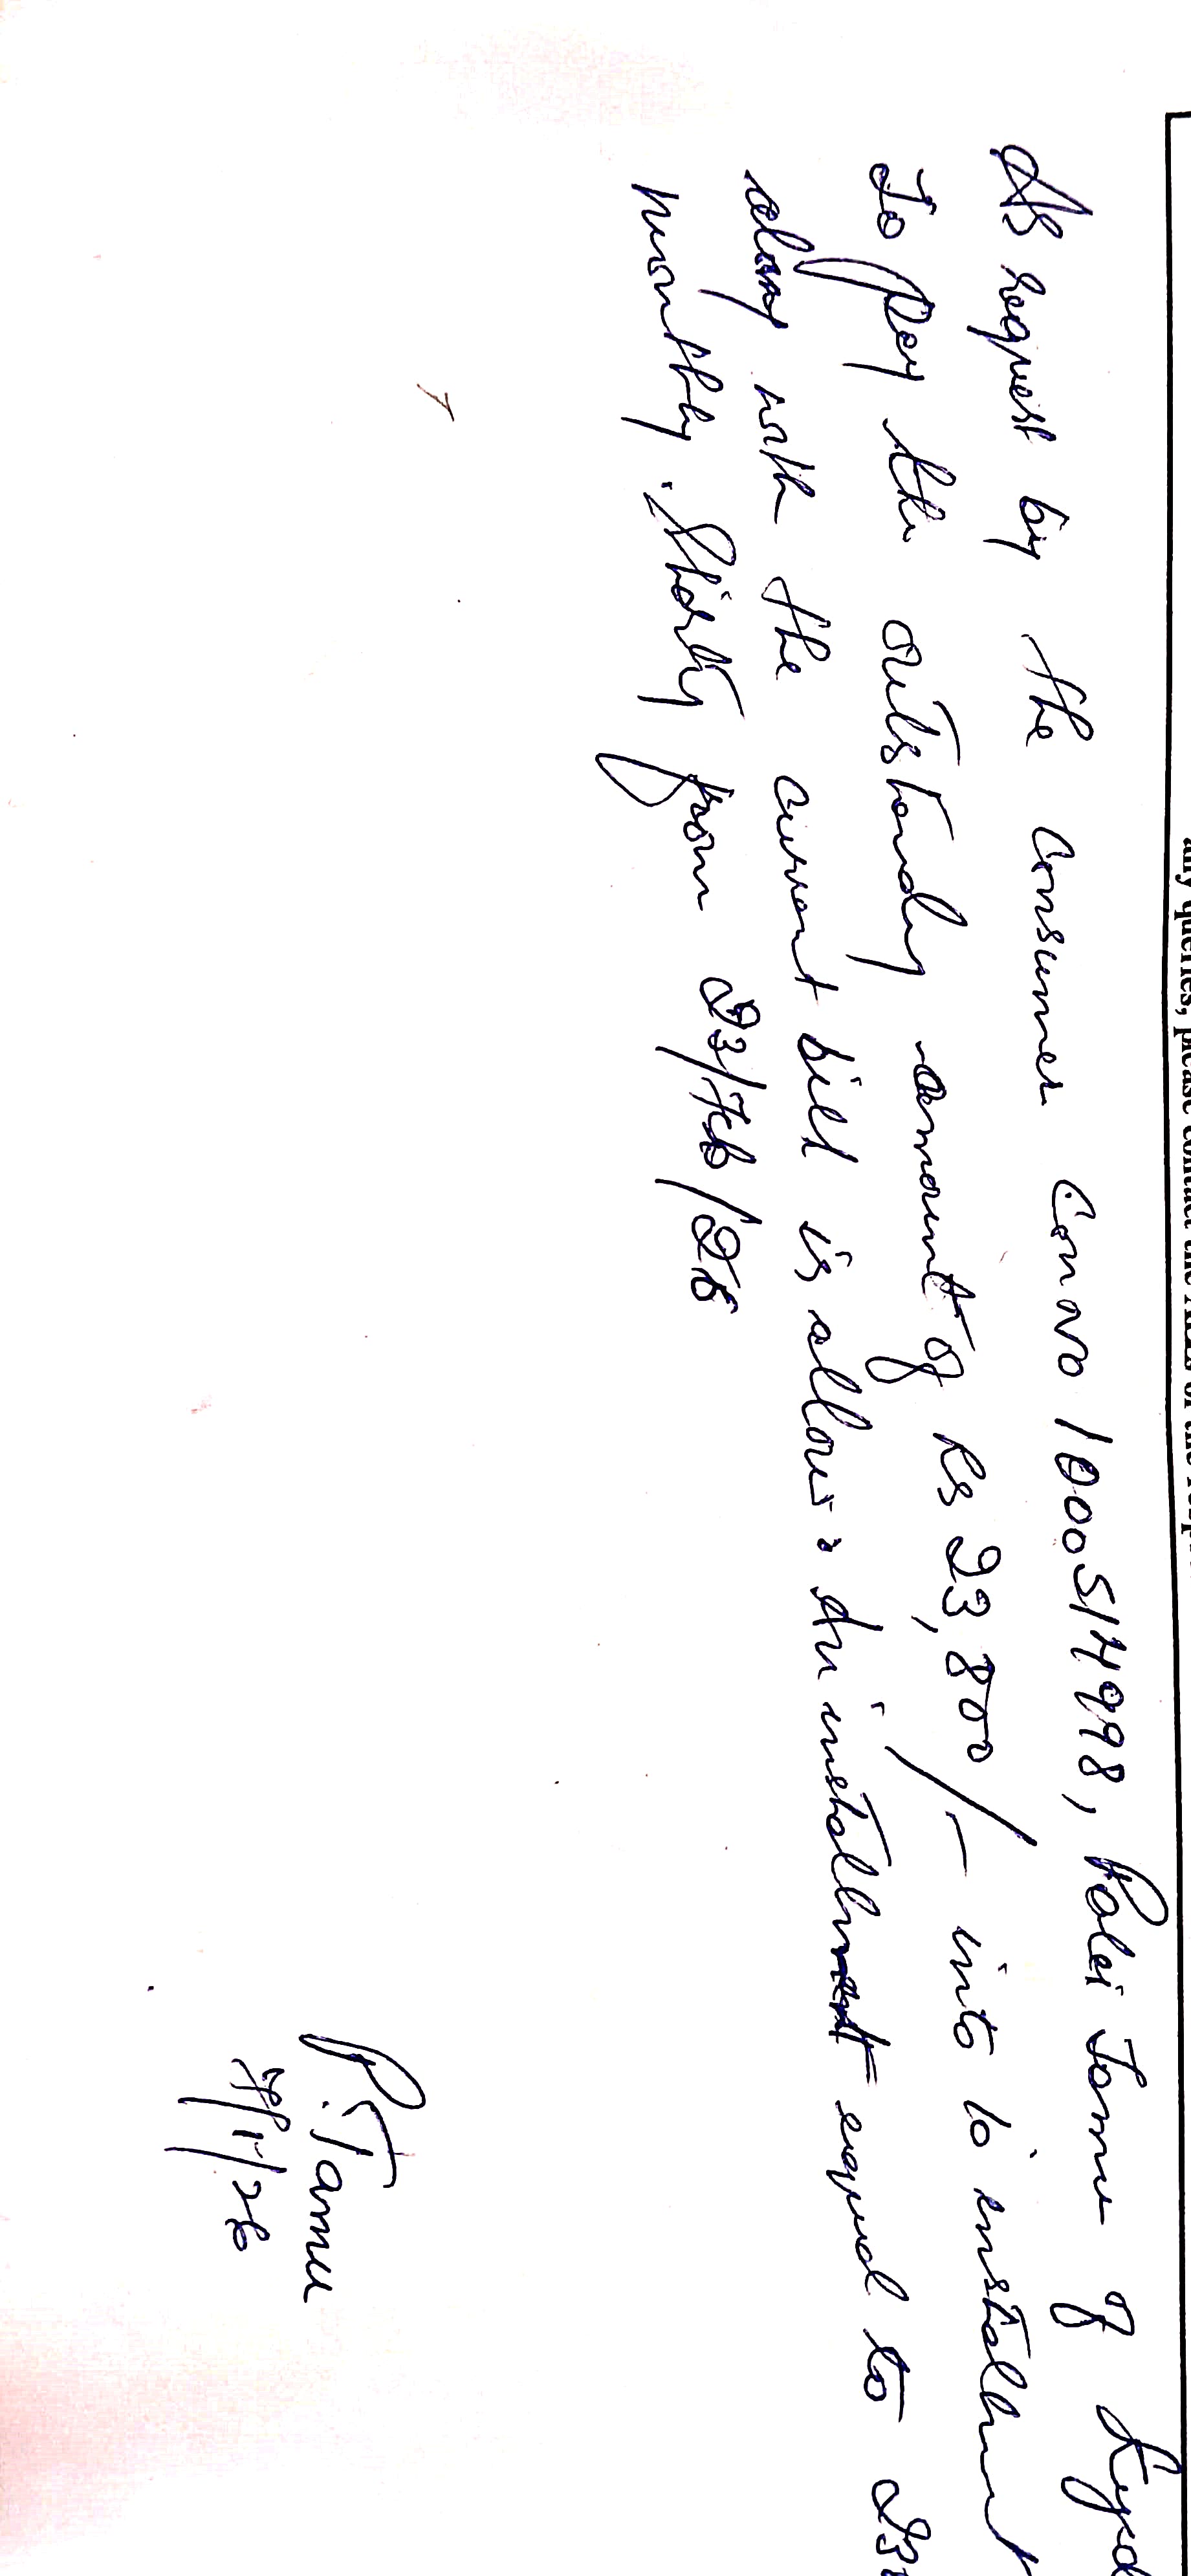 any queries, please contact the
As request by the Consumer Con no 100514998, Palei Tamu of
To pay the outstanding amount of Rs 23,800/- into 10 installment
along with the current bill is allow. An installment equal to
monthly. Starting from 23/Feb/26
P. Tamu
/1/26